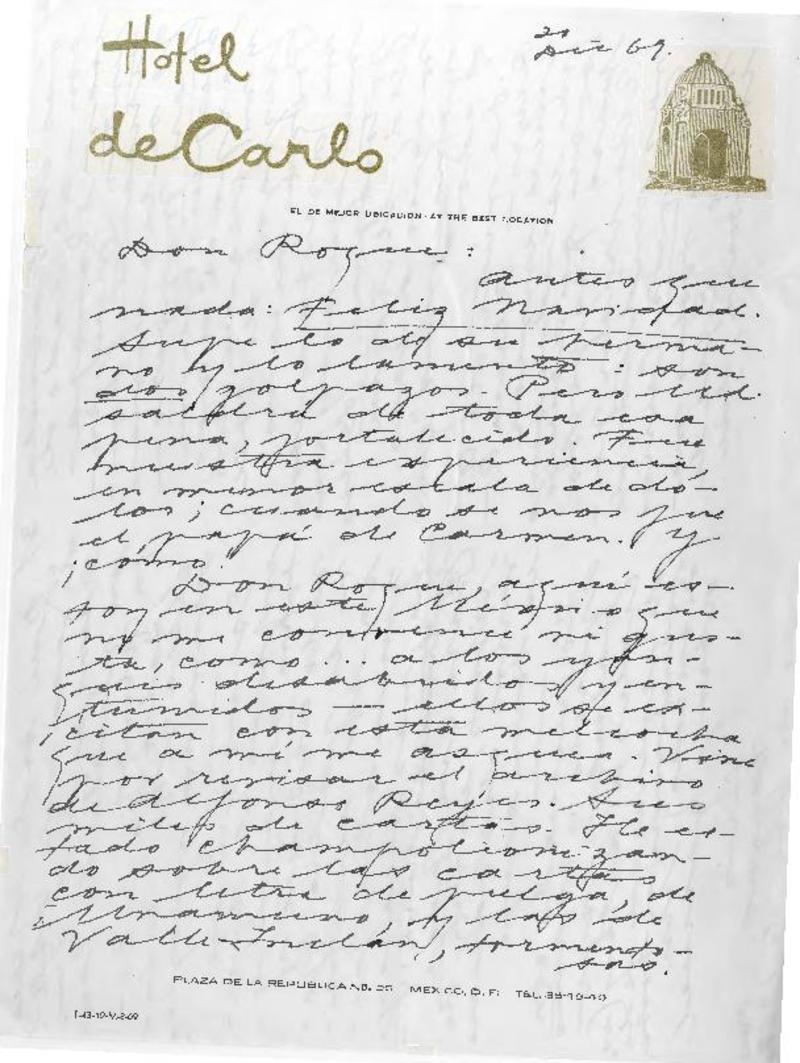 Hotel
de Carlo
21
Dic 69.
EL DE MEJOR UBICACION - AT THE BEST LOCATION
Don Roque:
Antes que
nada: Feliz Navidad.
Supe lo de su herma-
no y lo lamento: son
dos golpazos. Pero Ud.
saldrá de toda esa
pena, fortalecido. Fue
nuestra experiencia,
en menor escala de dó-
los; cuando se nos fue
el papá de Carmen. Y
¡cómo.
Don Roque, aquí es-
toy en este México que
no me convence ni gus-
ta, como... a los yan-
quis desabridos y en-
tumidos — ellos se ex-
citan con esta melcocha
que a mí me asquea. Vine
por revisar el archivo
de Alfonso Reyes. Sus
miles de cartas. He es-
tado champolionizan-
do sobre las cartas
con letra de pulga, de
Unamuno, y las de
Valle-Inclán, tormento-
sas.
PLAZA DE LA REPUBLICA NO. 35 MEXICO, D. F. TEL. 35-19-40